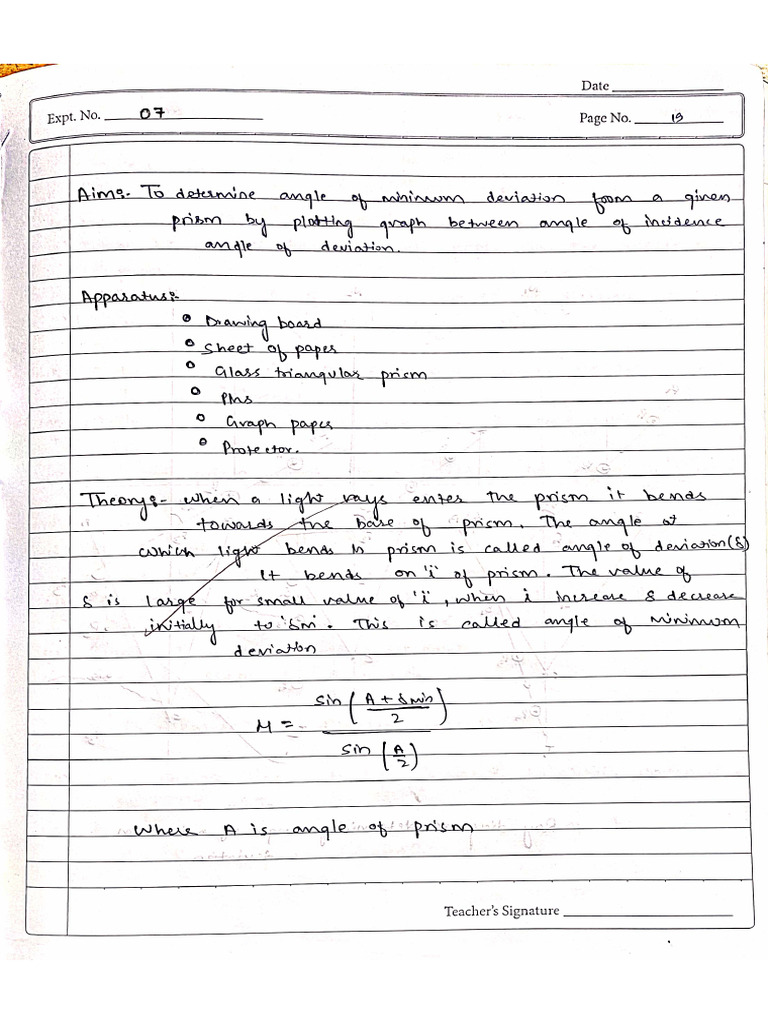 Date
Expt. No. 07
Page No. 19
Aim:- To determine angle of minimum deviation from a given
prism by plotting graph between angle of incidence
angle of deviation.
Apparatus:-
• Drawing board
• Sheet of paper
• Glass triangular prism
• Pins
• Graph paper
• Protector.
Theory:- When a light rays enters the prism it bends
towards the base of prism. The angle at
which light bends in prism is called angle of deviation (δ)
It bends on 'i' of prism. The value of
δ is large for small value of 'i', when i increase δ decrease
initially to 'δm'. This is called angle of minimum
deviation
μ = sin((A + δmin)/2) / sin(A/2)
Where A is angle of prism
Teacher's Signature